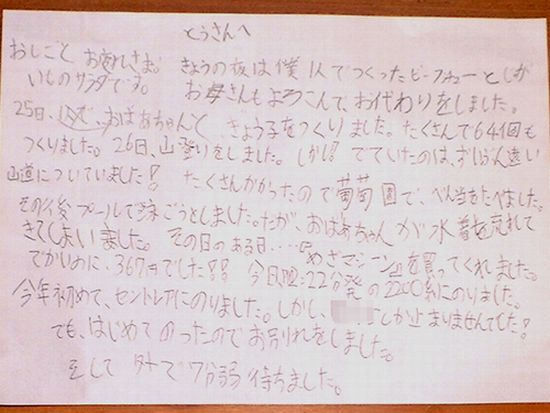 とうさんへ
おしごとお疲れさま。きょうの夜は僕1人でつくったビーフシチューとじゃが
いものサラダです。お母さんもよろこんで、おかわりをしました。
25日、おばあちゃんと、ぎょう子をつくりました。たくさんで64個も
つくりました。26日、山登りをしました。しかし!でていたのは、ずいぶん遠い
山道についていました!たくさんかかったので葡萄園で、べん当をたべました。
その後プールで泳ごうとしました。だが、おばあちゃんが水着を忘れて
きてしまいました。その日のある日……『めざマシーン』を買ってくれました。
でかいのに、367円でした!!今日、22分発の2200系にのりました。
今年初めて、セントレアにのりました。しかし、しか止まりませんでした!
でも、はじめてのったのでお別れをしました。
そして外で7分弱待ちました。